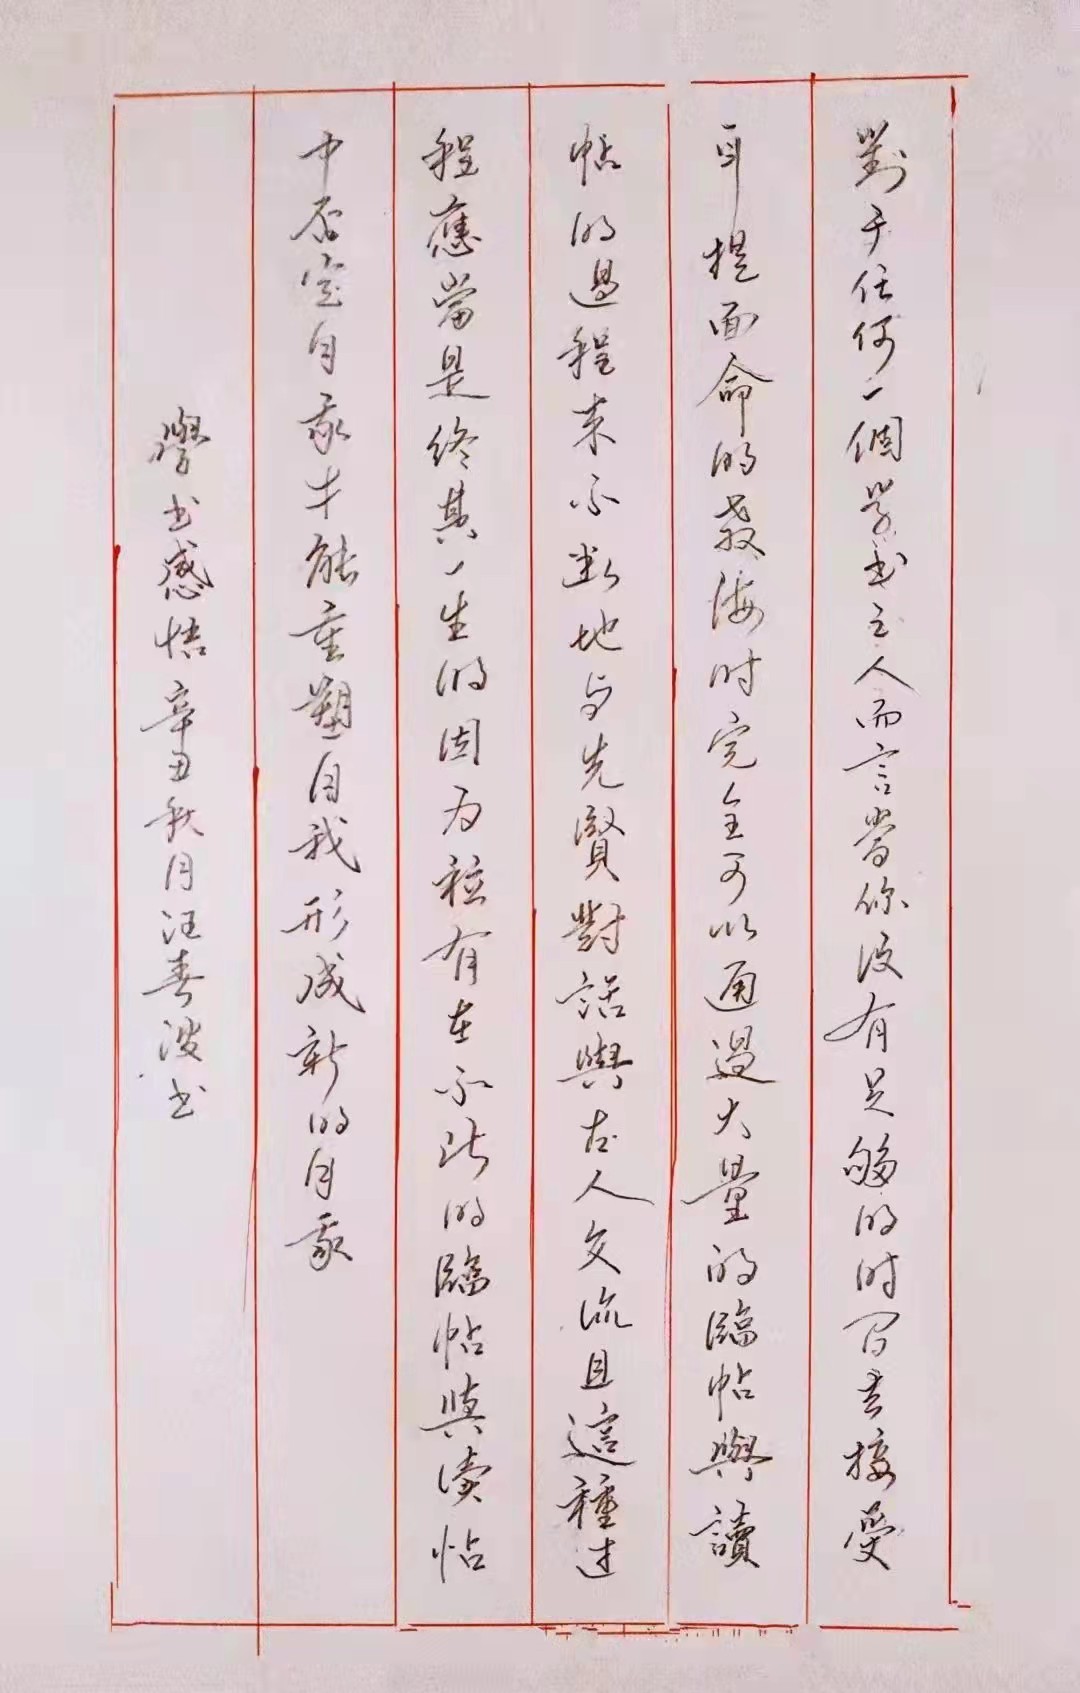 對于任何一個學書之人而言當你沒有足够的时間去接受
耳提面命的教海时完全可以通過大量的臨帖與讀
帖的過程来不断地与先賢對話與古人交流且這種过
程應當是終其一生的因为衹有在不断的臨帖與读帖
中否定自我才能重塑自我形成新的自我
學书感悟辛丑秋月汪春波书